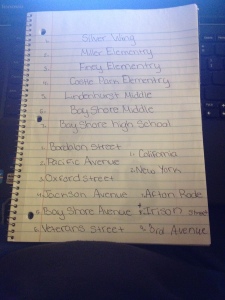 1. Silver Wing
2. Miller Elementry
3. Finey Elementry
4. Castle Park Elementry
5. Lindenhurst Middle
6. Bay Shore Middle
7. Bay Shore High School
1. Street
2. Pacific Avenue
3. Oxford street
4. Jackson Avenue
5. Bay Shore Avenue
6. Veterans Street
1. California
2. New York
1. Afton Rode
street
3rd Avenue